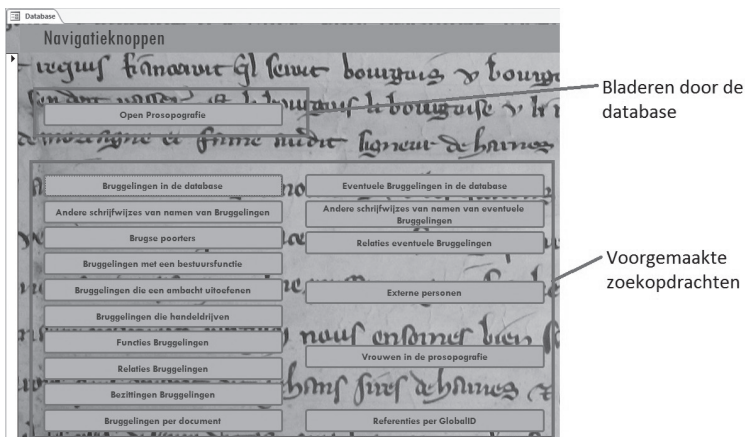 Database
Navigatieknoppen
Open Prosopografie
Bladeren door de
database
Bruggelingen in de database
Andere schrijfwijzes van namen van Bruggelingen
Brugse poorters
Bruggelingen met een bestuursfunctie
Bruggelingen die een ambacht uitoefenen
Bruggelingen die handeldrijven
Functies Bruggelingen
Relaties Bruggelingen
Bezittingen Bruggelingen
Bruggelingen per document
Eventuele Bruggelingen in de database
Andere schrijfwijzes van namen van eventuele
Bruggelingen
Relaties eventuele Bruggelingen
Externe personen
Vrouwen in de prosopografie
Referenties per GlobalID
Voorgemaakte
zoekopdrachten